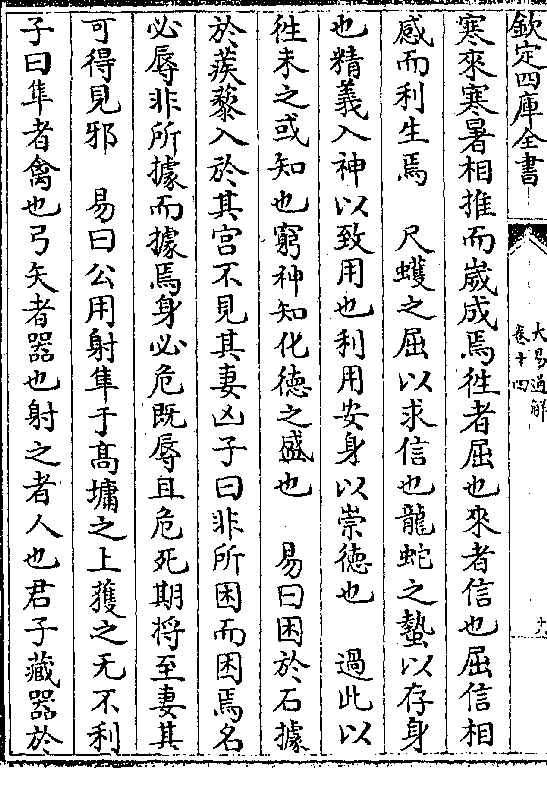 欽定四庫全書
大易通解
卷十四
十八
寒來寒暑相推而嵗成焉徃者屈也來者信也屈信相
感而利生焉　尺蠖之屈以求信也龍蛇之蟄以存身
也精義入神以致用也利用安身以崇德也　過此以
徃未之或知也窮神知化德之盛也　易曰困於石據
於蒺藜入於其宫不見其妻凶子曰非所困而困焉名
必辱非所據而據焉身必危既辱且危死期將至妻其
可得見邪　易曰公用射隼于髙墉之上獲之无不利
子曰隼者禽也弓矢者器也射之者人也君子藏器於